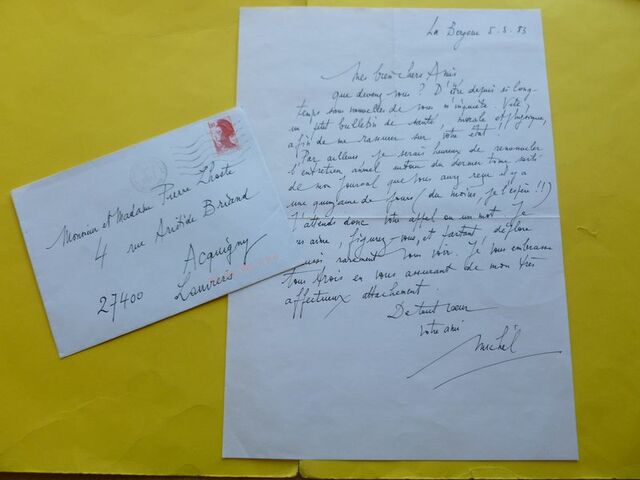 Monsieur et Madame Pierre Lhoste
4 rue Aristide Briand
Acquigny
27400 Louviers
La Bergerie 5.5.83
Mes bien chers Amis
que devenez-vous ? D'être depuis si long-
temps sans nouvelles de vous m'inquiète. Vite,
un petit bulletin de santé, morale et physique,
afin de me rassurer sur votre état !!
Par ailleurs je serais heureux de renouveler
l'entretien annuel autour du dernier tome sorti
de mon journal que vous avez reçu il y a
une quinzaine de jours (du moins je l'espère !!)
J'attends donc votre appel ou un mot. Je
vous aime, figurez-vous, et partant déplore
aussi rarement vous voir. Je vous embrasse
tous trois en vous assurant de mon très
affectueux attachement.
De tout cœur
votre ami
Michel